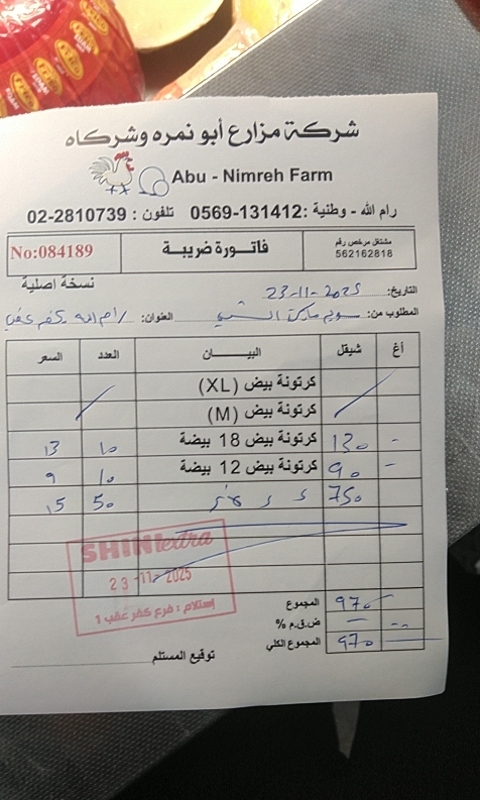 شركة مزارع أبو نمره وشركاه
Abu - Nimreh Farm
رام الله - وطنية :0569-131412 تلفون : 02-2810739
مشتغل مرخص رقم
562162818
فاتـــورة ضريبـة
No:084189
نسخة اصلية
التاريخ: 23-11-2025
المطلوب من: سوبر ماركت الشني العنوان: رام الله كفر عقب
أغ شيقل البيـــــــان العدد السعر
كرتونة بيض (XL)
كرتونة بيض (M)
- 130 كرتونة بيض 18 بيضة 10 13
- 90 كرتونة بيض 12 بيضة 10 9
750 50 15
SHINI extra
23 -11- 2025
إستلام : فرع كفر عقب 1
المجموع 970
ض.ق.م %
المجموع الكلي 970
توقيع المستلم